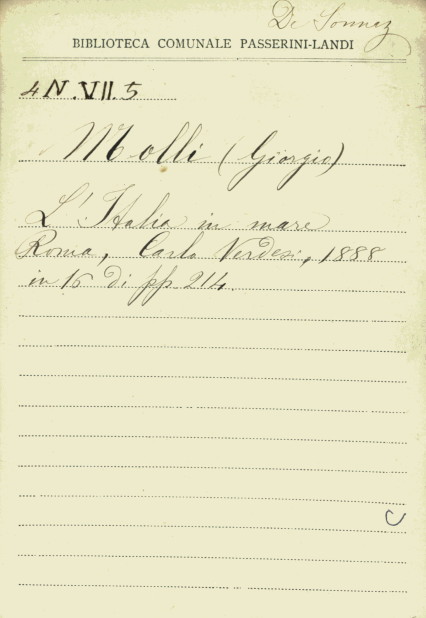 De Sonnez
BIBLIOTECA COMUNALE PASSERINI-LANDI
4N.VII.5
Molli (Giorgio)
L'Italia in mare
Roma, Carlo Verdesi, 1888
in 16 di pp 214.
C